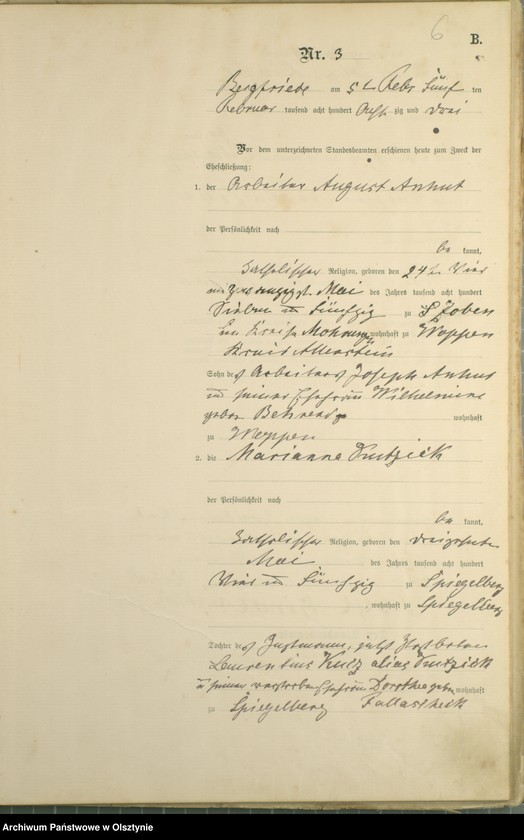 6
B.
Nr. 3
Bergfriede am 5t Febr. Fünf ten
Februar tausend acht hundert Acht zig und drei
Vor dem unterzeichneten Standesbeamten erschienen heute zum Zweck der
Eheschließung:
1. der Arbeiter August Anhut
der Persönlichkeit nach
be kannt,
katholischer Religion, geboren den 24t Vier
und zwanzigst. Mai des Jahres tausend acht hundert
Sieben u Fünfzig zu
Im Kreise wohnhaft zu Woppen
Kreis Allenstein
Sohn des Arbeiters Joseph Anhut
u seiner Ehefrau Wilhelmine
gebor. Behrend wohnhaft
zu Woppen
2. die Marianna
der Persönlichkeit nach
be kannt,
katholischer Religion, geboren den dreizehnten
Mai des Jahres tausend acht hundert
Vier u Fünfzig zu Spiegelberg
, wohnhaft zu Spiegelberg
Tochter des jetzt
Laurentius alias
u seiner verstorben Ehefrau Dorothea geb. wohnhaft
zu Spiegelberg
Archiwum Państwowe w Olsztynie